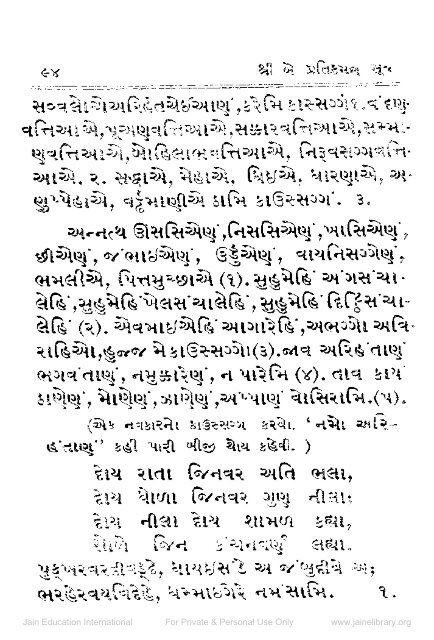 ૯૪ શ્રી બે પ્રતિક્રમણ સૂત્ર
સવ્વલોએઅરિહંતચેઇઆણં,કરેમિ કાસ્સગ્ગં૧.વંદણ-
વત્તિઆએ,પૂઅણવત્તિઆએ,સક્કારવત્તિઆએ,સમ્મા-
ણવત્તિઆએ,બોહિલાભવત્તિઆએ, નિરૂવસગ્ગવત્તિ-
આએ. ૨. સદ્ધાએ, મેહાએ, ધિઇએ, ધારણાએ, અ-
ણુપ્પેહાએ, વડ્ઢમાણીએ ઠામિ કાઉસ્સગ્ગં. ૩.
અન્નત્થ ઊસસિએણં,નિસસિએણં,ખાસિએણં,
છીએણં, જંભાઇએણં, ઉડ્ડુએણં, વાયનિસગ્ગેણં,
ભમલીએ, પિત્તમુચ્છાએ (૧). સુહુમેહિં અંગસંચા-
લેહિં,સુહુમેહિંખેલસંચાલેહિં,સુહુમેહિં દિટ્ઠિસંચા-
લેહિં (૨). એવમાઇએહિં આગારેહિં,અભગ્ગો અવિ-
રાહિઓ,હુજ્જ મેકાઉસ્સગ્ગો(૩).જાવ અરિહંતાણં
ભગવંતાણં, નમુક્કારેણં, ન પારેમિ (૪). તાવ કાયં
ઠાણેણં, મોણેણં,ઝાણેણં,અપ્પાણં વોસિરામિ.(૫).
(એક નવકારનો કાઉસ્સગ્ગ કરવો. ‘નમો અરિ-
હંતાણં” કહી પારી બીજી થોય કહેવી. )
દોય રાતા જિનવર અતિ ભલા,
દોય ધોળા જિનવર ગુણ નીલા;
દોય નીલા દોય શામળ કહ્યા,
સોળે જિન કંચનવર્ણ લહ્યા.
પુક્ખરવરદીવડ્ઢે, ધાયઇસંડે અ જંબુદીવે અ;
ભરહેરવયવિદેહે, ધમ્માઇગરે નમંસામિ. ૧.
Jain Education International For Private & Personal Use Only www.jainelibrary.org